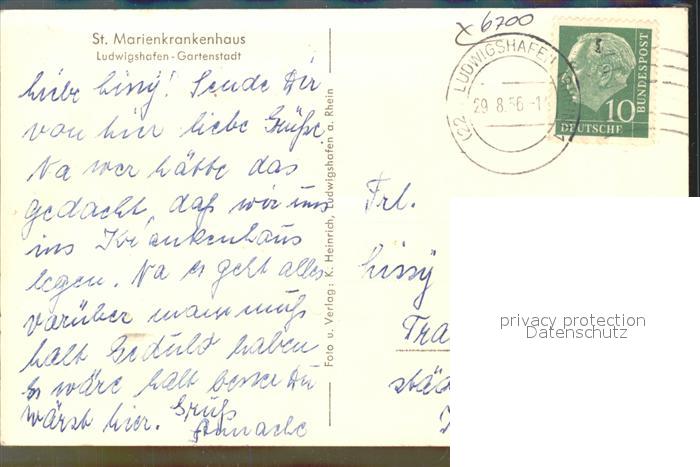 St. Marienkrankenhaus
Ludwigshafen - Gartenstadt
Liebe Lissÿ! Sende Dir
von hier liebe Grüße.
Na wer hätte das
gedacht, daß wir uns
ins Krankenhaus
legen. Na es geht alles
vorüber man muß
halt Geduld haben
Es wäre halt besser Du
wärst hier. Gruß
Foto u. Verlag: K. Heinrich, Ludwigshafen a. Rhein
x 6700
(22 LUDWIGSHAFEN
29.8.56-1
10
DEUTSCHE
BUNDESPOST
Frl.
Lissÿ
Tra
städ
privacy protection
Datenschutz